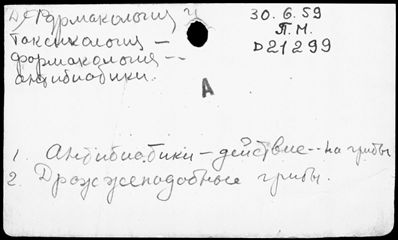 Д Фармакология и
токсикология –
фармакология --
антибиотики.
30.6.59
П.М.
D21299
A
1. Антибиотики – действие -- на грибы
2. Дрожжеподобные грибы.